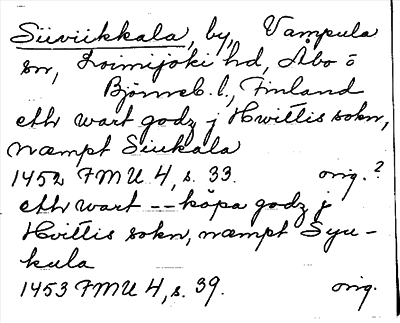 Siiviikkala, by, Vampula
sn, Loimijoki hd, Åbo o
Björneb. l., Finland
eth wart godz j Hwittis sokn,
næmpt Siukala
1452 FMU 4, s. 33. orig.?
eth wart -- köpa godz j
Hvittis sokn, næmpt Syu-
kula
1453 FMU 4, s. 39. orig.